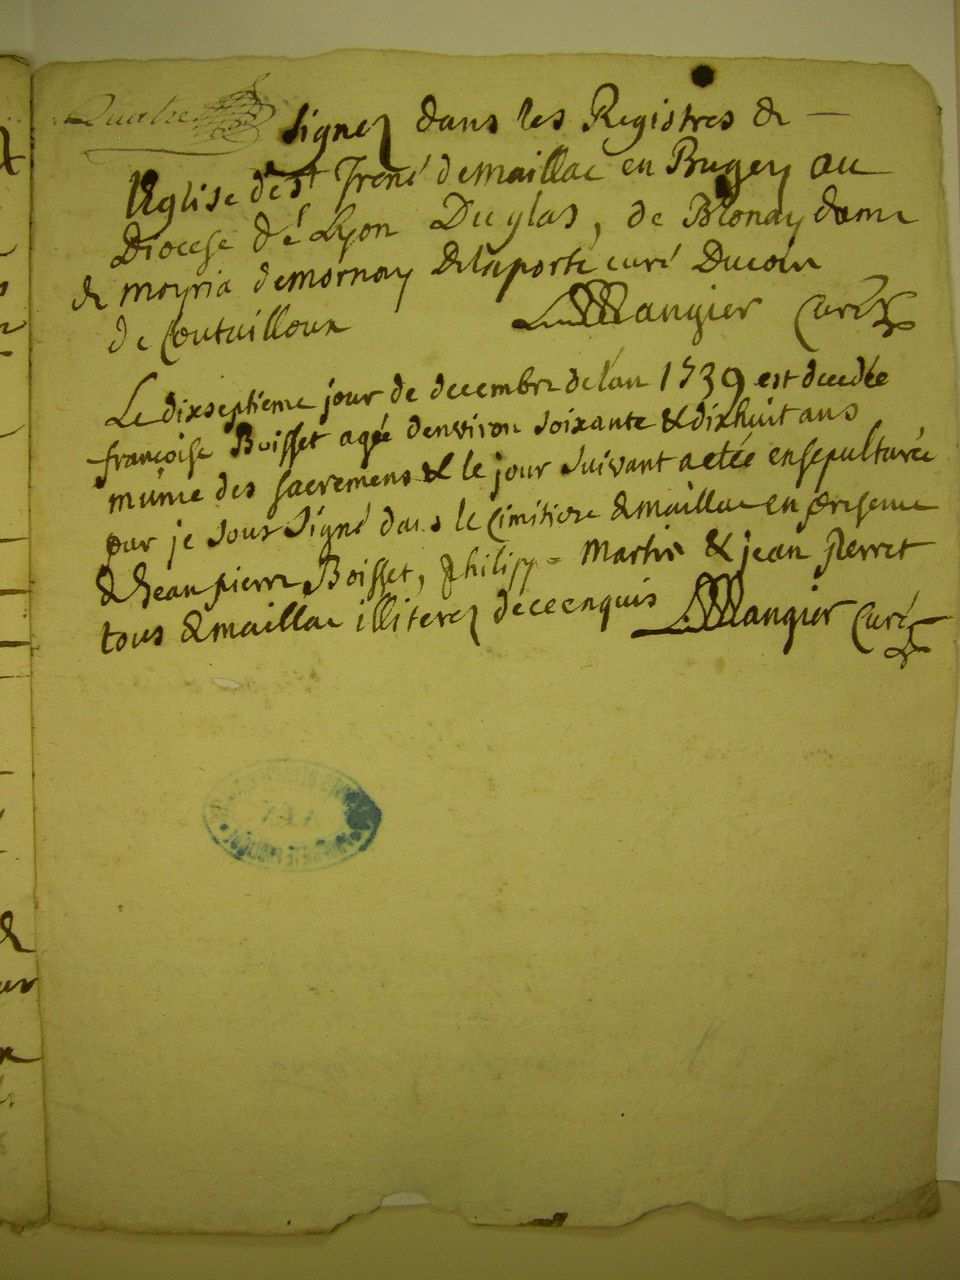 Quatre signez dans les Registres de
l'Eglise de st Irené de maillac en Bugey au
Diocese dé Lyon Duglas, de Blonay dame
de moyria demornay Delaporte curé Ducoin
de Coutailloux Mangier Curé
Le dixseptieme jour de decembre de l'an 1739 est decedée
françoise Boisset agée denviron soixante & dixhuit ans
munie des sacremens & le jour suivant aetée ensepulturée
par je sous signé dans le cimitiere de maillac en presence
de Jean pierre Boisset, philippe Martin & jean perret
tous de maillac illiterez de ce enquis Mangier Curé